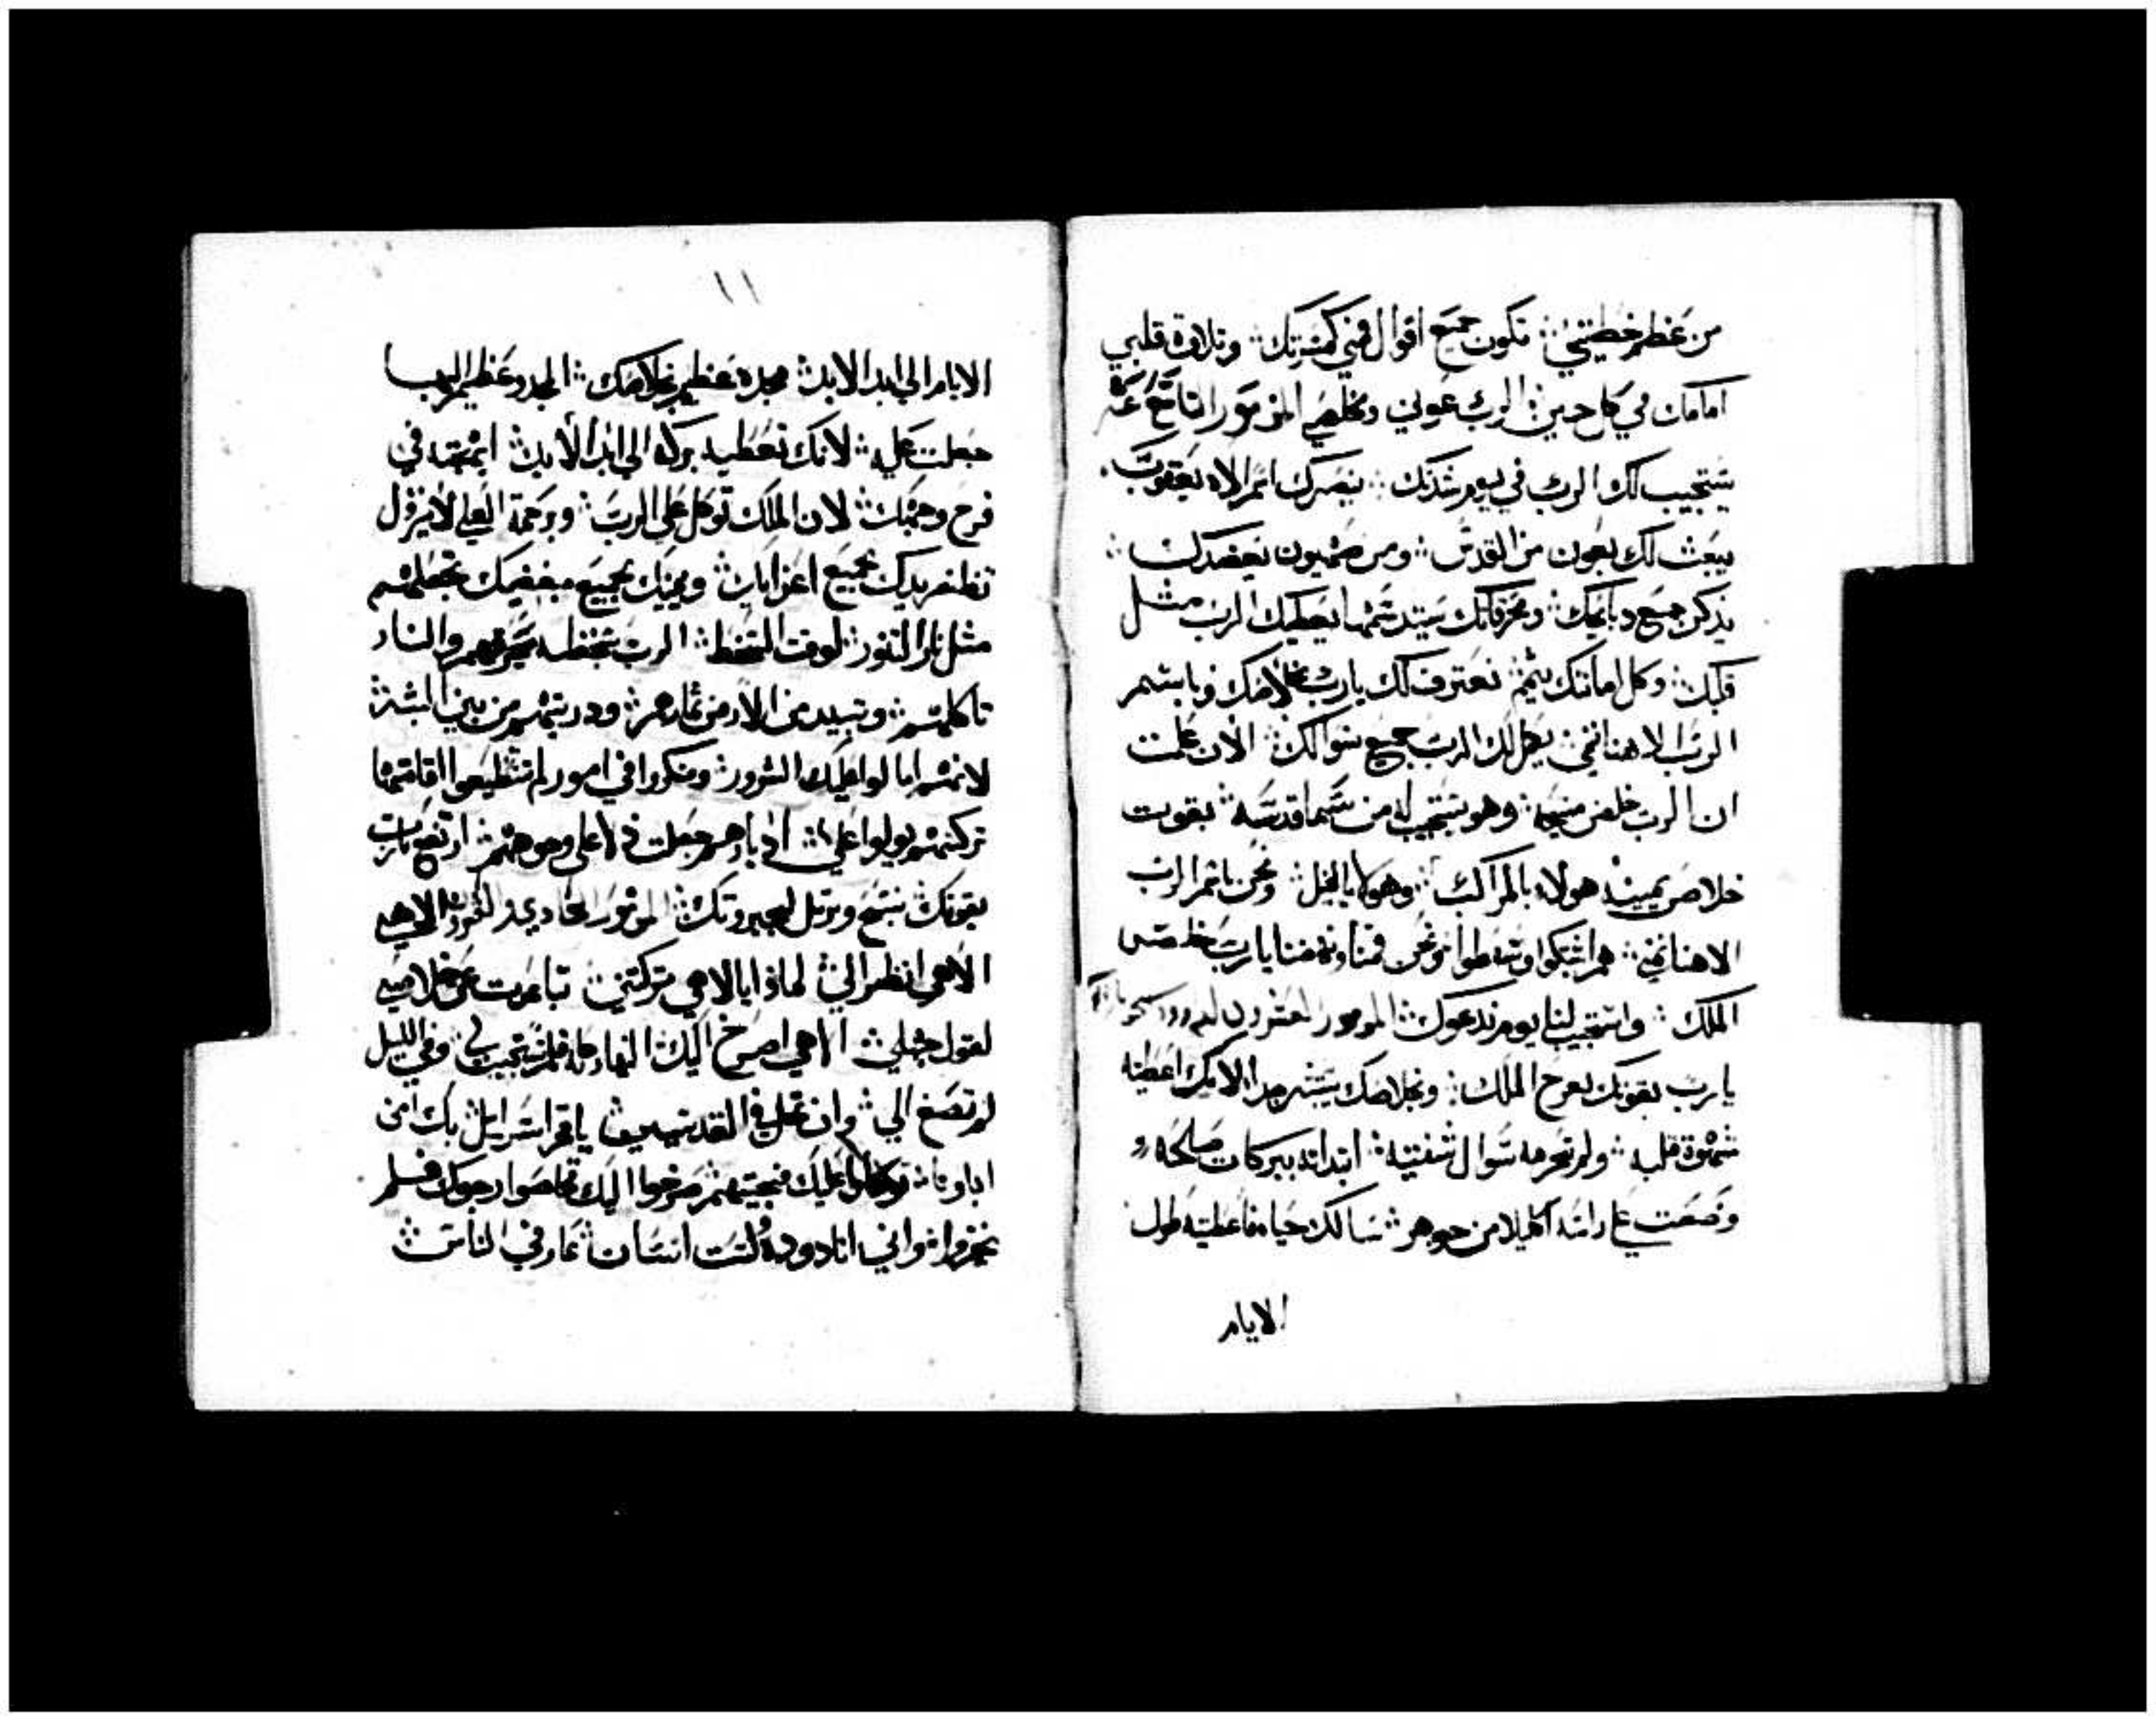 من عظم خطيتي ؞ تكون جميع اقوال فمي كمسرتك ؞ وتلاوة قلبي
امامك في كل حين ؞ الرب عوني ومخلصي المزمور التاسع عشر
يستجيب لك الرب في يوم شدتك ؞ ينصرك اسم الاه يعقوب
يبعث لك بعون من القدس ؞ ومن صهيون يعضدك ؞
يذكر جميع دبايحك ؞ ومحرقاتك يستدسمها يعطيك الرب مثل
قلبك ؞ وكل امانتك يتمم ؞ نعترف لك يارب بخلاصك وباسم
الرب الاهنا ننمي ؞ يكمل لك الرب جميع سوالك ؞ الان علمت
ان الرب خلص مسيحه ؞ وهو يستجيب له من سما قدسه ؞ بقوت
خلاص يمينه هولاء بالمراكب ؞ وهولا بالخيل ؞ ونحن باسم الرب
الاهنا ننمي ؞ هم اشتبكوا وسقطوا ؞ ونحن قمنا ونهضنا يارب خلص
الملك ؞ واستجيب لنا يوم ندعوك ؞ المزمور العشرون لداوود
يارب بقوتك يفرح الملك ؞ وبخلاصك يتسر جدا الانك اعطيته
شهوة قلبه ؞ ولم تحرمه سوال شفتيه ؞ ابتداته ببركات صالحه
وضعت على راسه اكليلا من جوهر ؞ سالك حياه فاعطيته طول
الايام
١١
الايام الي ابد الابد ؞ مجده عظيم بخلاصك ؞ المجد وعظم البها
جعلت عليه ؞ لانك تعطيه بركه الي ابد الابد ؞ ابهجته في
فرح وجهك ؞ لان الملك توكل على الرب ؞ وبرحمة العلي لا يزول
تظفر يدك بجميع اعدايك ؞ ويمينك بجميع مبغضيك تجعلهم
مثل نار التنور ؞ لوقت السخط ؞ الرب بسخطه يحرقهم والنار
تاكلهم ؞ وتبيد من الارض ثمارهم ؞ ودريتهم من بني البشر
لانهم امالوا عليك الشرور ؞ وفكروا في امور لم يستطيعوا اقامتها
تركتهم يولوا علي ادبارهم جعلت وجوههم ؞ ارتفع يارب
بقوتك نسبح ونرتل لجبروتك ؞ المزمور الحادي والعشرون الاهي
الاهي انظر الي ؞ لماذا يا الاهي تركتني ؞ تباعدت عن خلاصي
لقول جهلي ؞ الاهي اصرخ اليك النهار كله فلم تستجيب لي ؞ وفي الليل
لم تصغ الي ؞ وانت تحل في القديسين ؞ يا فخر اسرايل بك امن
اباونا ؞ توكلوا عليك فنجيتهم صرخوا اليك تخلصوا رجوك فلم
يخزوا ؞ واني انا دوده ولست انسان ؞ عار في الناس ؞